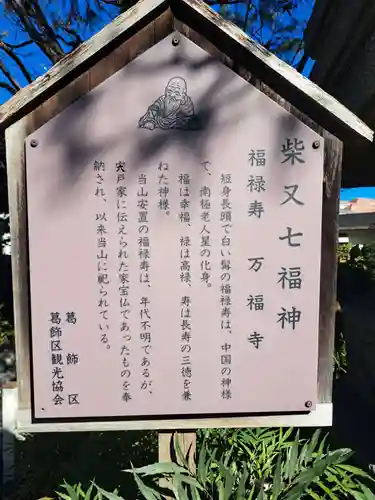 柴又七福神
福禄寿　万福寺
短身長頭で白い髯の福禄寿は、中国の神様
で、南極老人星の化身。
福は幸福、禄は高禄、寿は長寿の三徳を兼
ねた神様。
当山安置の福禄寿は、年代不明であるが、
宍戸家に伝えられた家宝仏であったものを奉
納され、以来当山に祀られている。
葛飾区
葛飾区観光協会